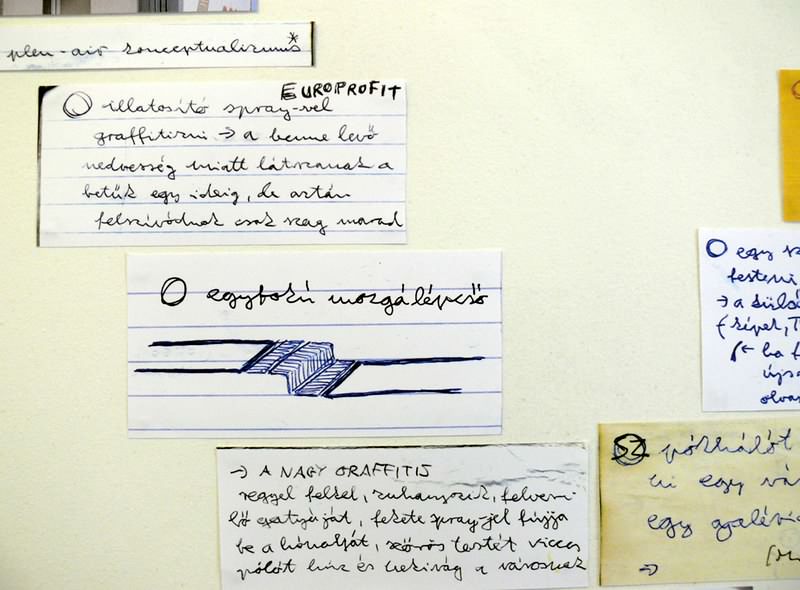 plen-air konceptualizmus*
EUROPROFIT
illatosító spray-vel
graffitizni → a benne levő
nedvesség miatt látszanak a
betűk egy ideig, de aztán
felszívódnak csak szag marad
egyfokú mozgólépcső
→ A NAGY GRAFFITIS
reggel felkel, zuhanyozik, felveszi
lő gatyáját, fekete spray-jel fújja
be a hónalját, szőrös testét vicces
pólót húz és nekivág a városnak
egy
festeni
→ a külső
(képek,
← ha
olvas
SZ pókhálót
ki egy
egy
→